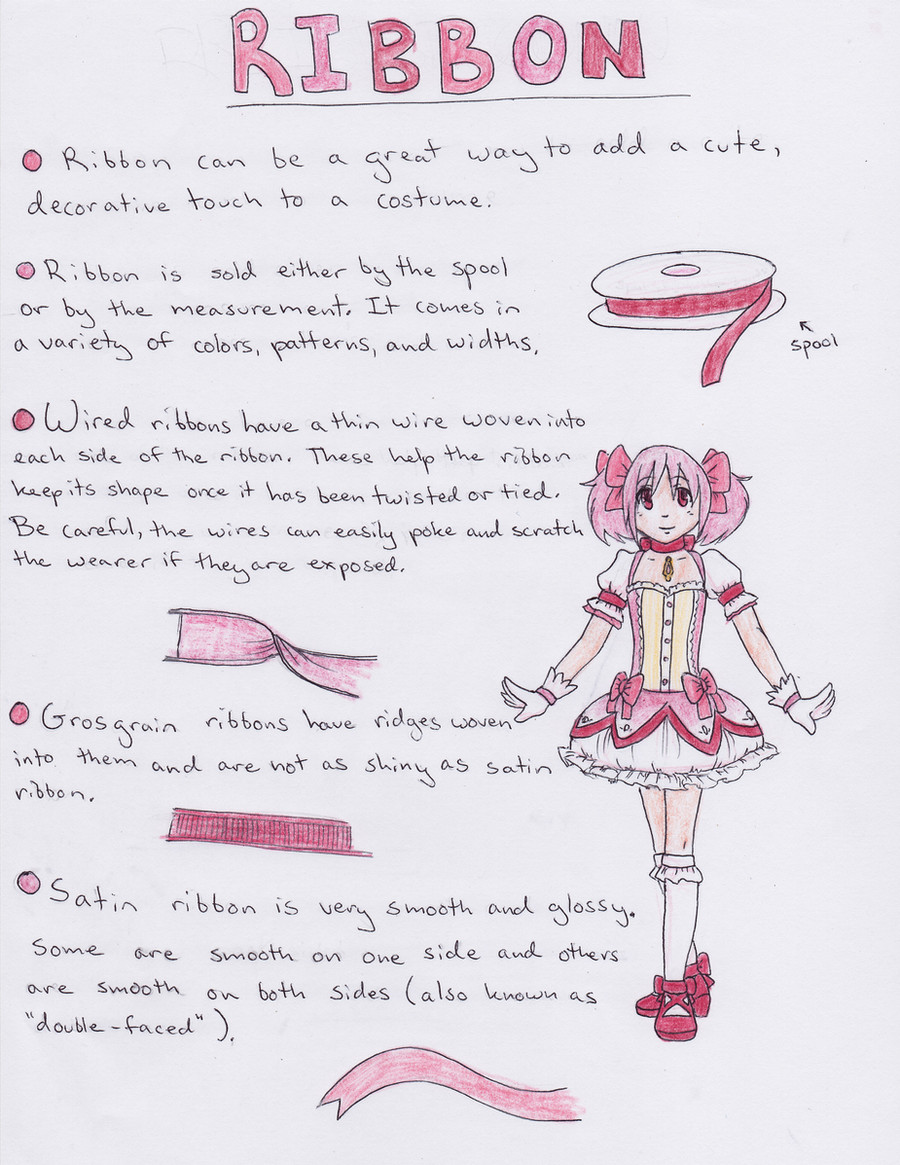 RIBBON
Ribbon can be a great way to add a cute,
decorative touch to a costume.
Ribbon is sold either by the spool
or by the measurement. It comes in
a variety of colors, patterns, and widths.
spool
Wired ribbons have a thin wire woven into
each side of the ribbon. These help the ribbon
keep its shape once it has been twisted or tied.
Be careful, the wires can easily poke and scratch
the wearer if they are exposed.
Grosgrain ribbons have ridges woven
into them and are not as shiny as satin
ribbon.
Satin ribbon is very smooth and glossy.
Some are smooth on one side and others
are smooth on both sides (also known as
"double-faced").